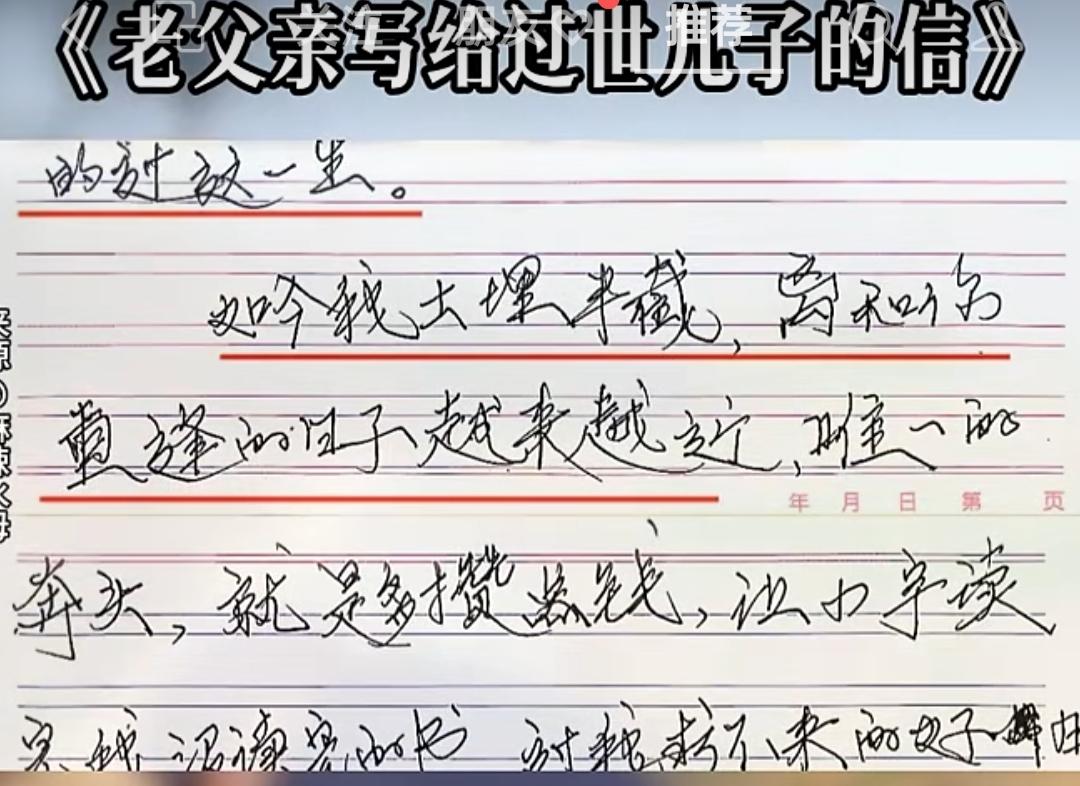 推荐
《老父亲写给过世儿子的信》
的讨这一生。
如今我土埋半截，离和你
重逢的日子越来越近，唯一的
年 月 日 第 页
奔头，就是多攒点钱，让小宇读
完我没读完的书